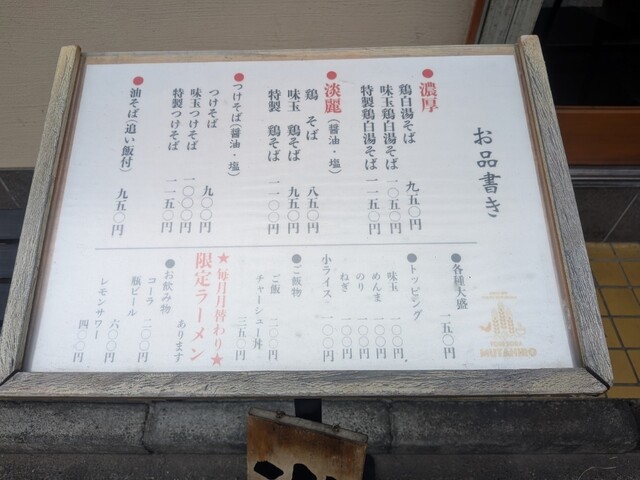 お品書き
●濃厚
鶏白湯そば 九五〇円
味玉鶏白湯そば 一〇五〇円
特製鶏白湯そば 一一五〇円
●淡麗(醤油・塩)
鶏そば 八五〇円
味玉 鶏そば 九五〇円
特製 鶏そば 一一〇〇円
●つけそば(醤油・塩)
つけそば 九〇〇円
味玉つけそば 一〇〇〇円
特製つけそば 一一五〇円
●油そば(追い飯付) 九五〇円
●各種大盛 一五〇円
●トッピング
味玉 一〇〇円
めんま 一〇〇円
のり 一〇〇円
ねぎ 一〇〇円
小ライス 一〇〇円
●ご飯物
ご飯 二〇〇円
チャーシュー丼 三五〇円
★毎月月替わり★
限定ラーメン
あります
●お飲み物
コーラ 二〇〇円
瓶ビール 六〇〇円
レモンサワー 四〇〇円
MUTAHIRO